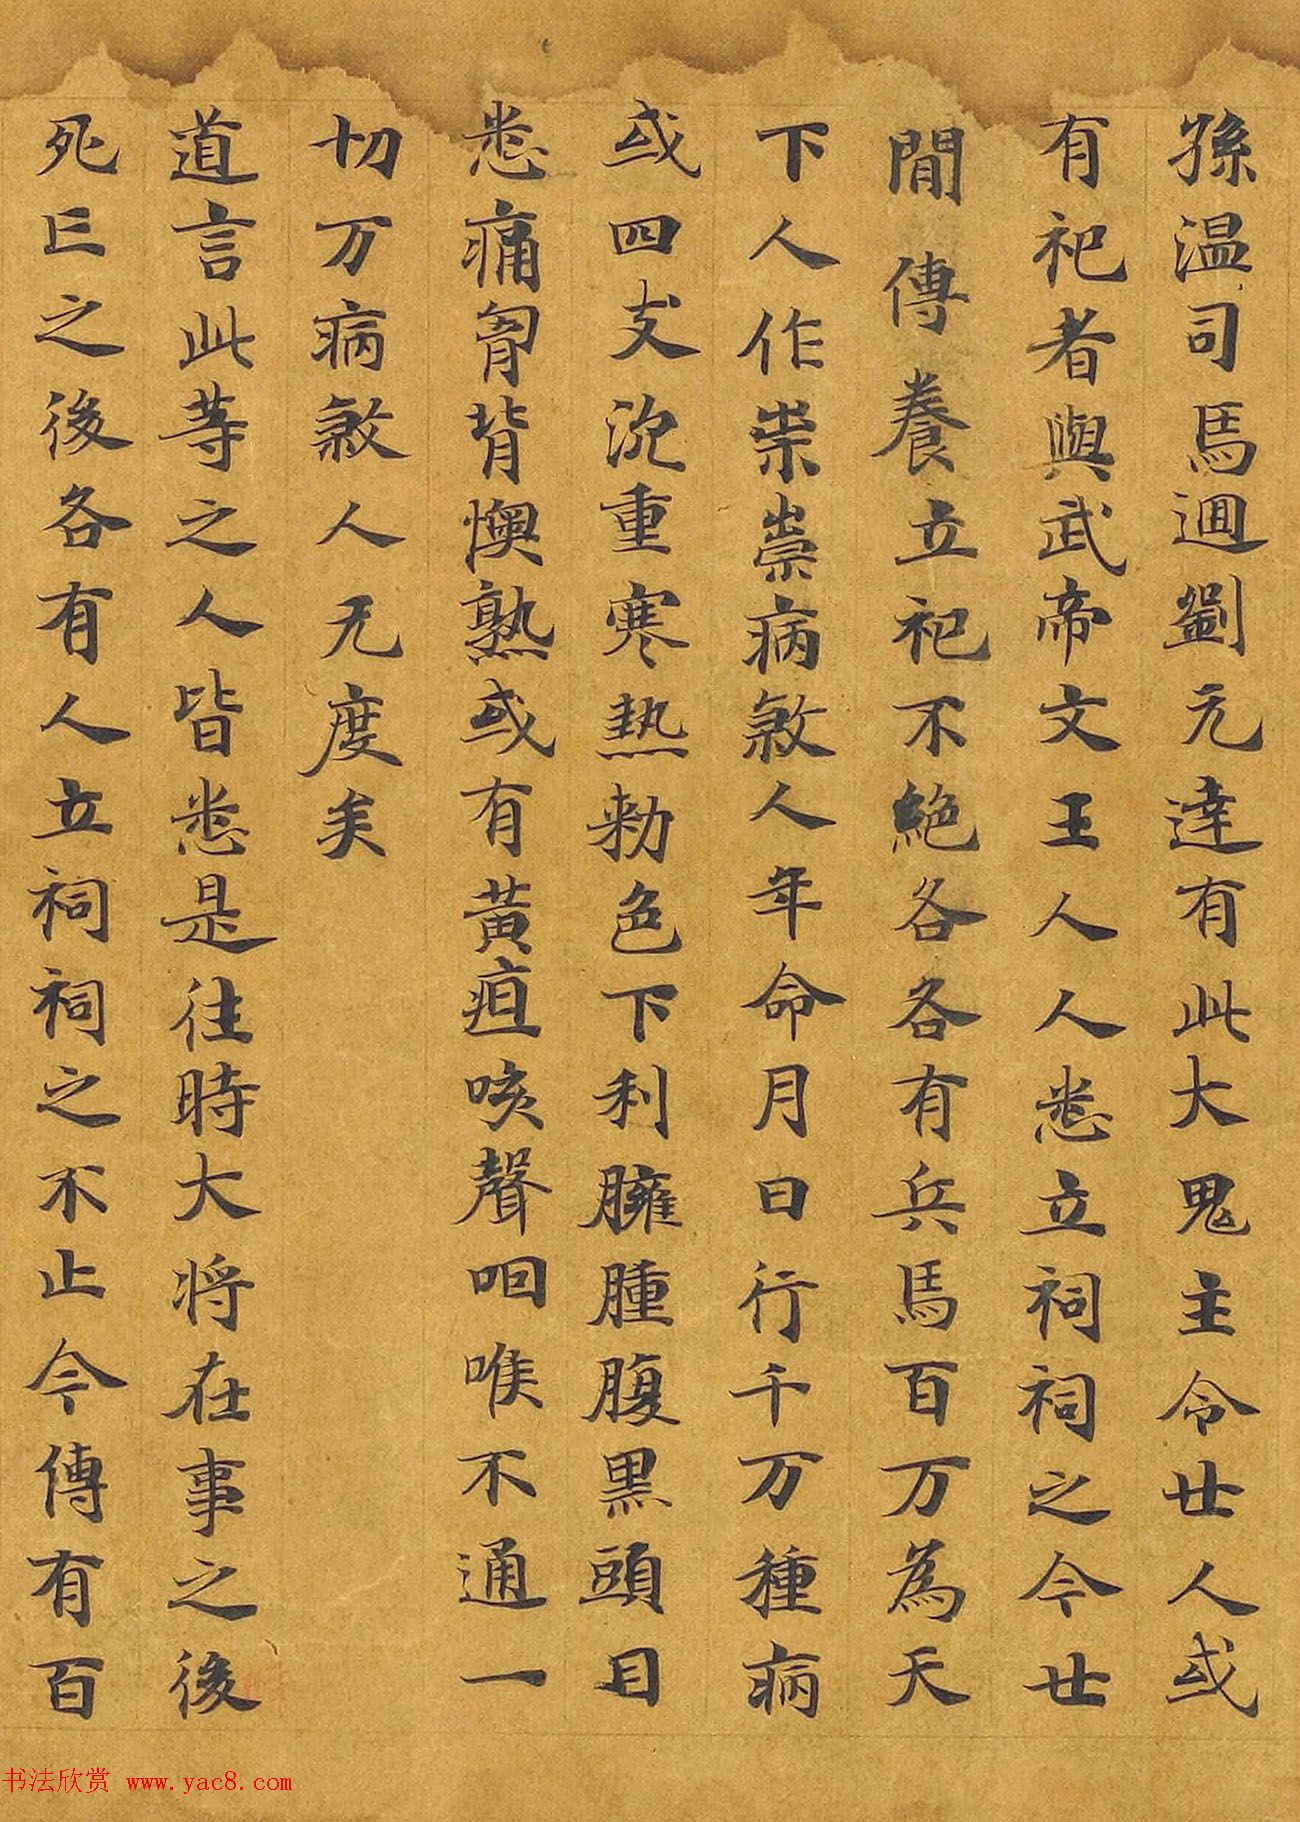 孫温司馬迴劉元達有此大鬼主令世人或
有祀者與武帝文王人人悉立祠祠之今世
閒傳養立祀不絶各各有兵馬百万為天
下人作祟祟病煞人年命月日行千万種病
或四支沉重寒熱勑色下利臃腫腹黑頭目
悉痛匈背懊熟或有黃疸咳聲咽喉不通一
切万病煞人无度矣
道言此等之人皆悉是往時大将在事之後
死亡之後各有人立祠祠之不止今傳有百
书法欣赏 www.yac8.com